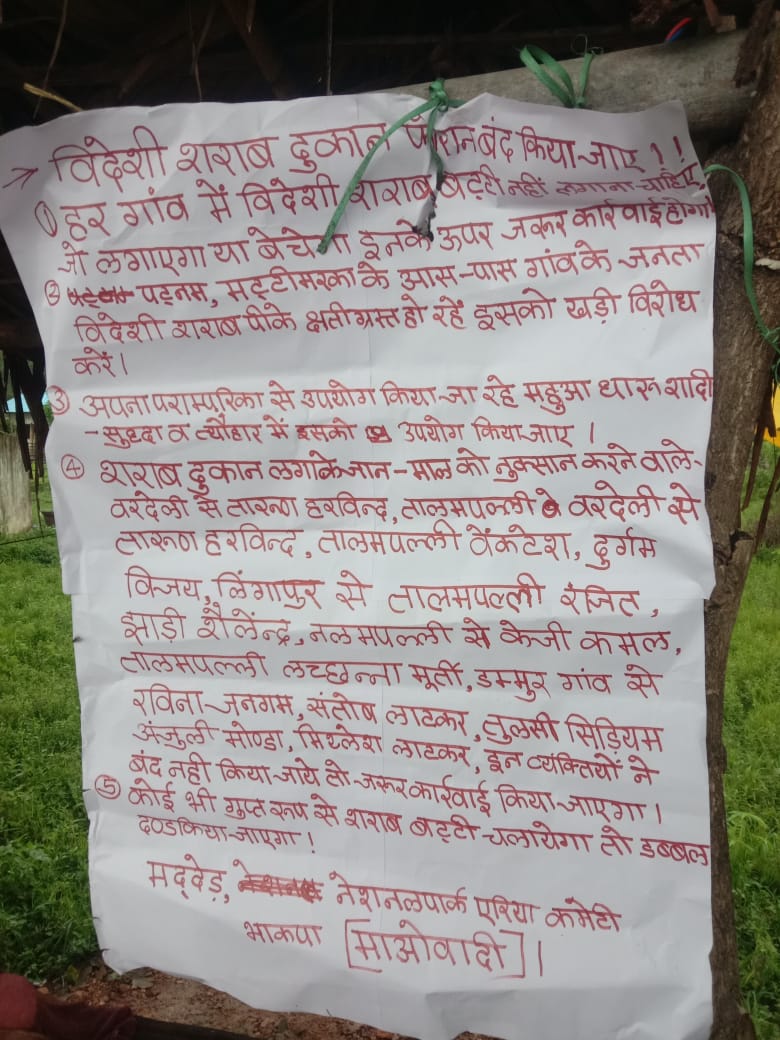 → विदेशी शराब दुकान फौरन बंद किया जाए !!
① हर गांव में विदेशी शराब बट्टी नहीं लगाना चाहिए,
जो लगाएगा या बेचेगा इनके ऊपर जरूर कार्रवाई होगी
② पट्नम, मट्टीमरका के आस-पास गांव के जनता
विदेशी शराब पीके क्षतीग्रस्त हो रहें इसको खड़ी विरोध
करें।
③ अपना पराम्परिका से उपयोग किया जा रहे महुआ धारू शादी
- सुध्दा व त्यौहार में इसको उपयोग किया जाए ।
④ शराब दुकान लगाके जान-माल को नुक्सान करने वाले-
वरदेली से तारूण हरविन्द, तालमपल्ली वरदेली से
तारूण हरविन्द, तालमपल्ली वेंकटेश, दुर्गम
विजय, लिंगापुर से तालमपल्ली रंजित,
झाड़ी शैलेंन्द्र, नलमपल्ली से केजी कमल,
तालमपल्ली लच्छन्ना मूर्ती, डम्मुर गांव से
रविना जनगम, संतोष लाटकर, तुलसी सिड़ियम
अंजुली मोण्डा, मिथ्लेश लाटकर, इन व्यक्तियों ने
बंद नहीं किया जाये तो जरूर कार्रवाई किया जाएगा ।
⑤ कोई भी गुप्त रूप से शराब बट्टी चलायेगा तो डब्बल
दण्ड किया जाएगा !
मद्देड़, नेशनल पार्क एरिया कमेटी
भाकपा [माओवादी] ।